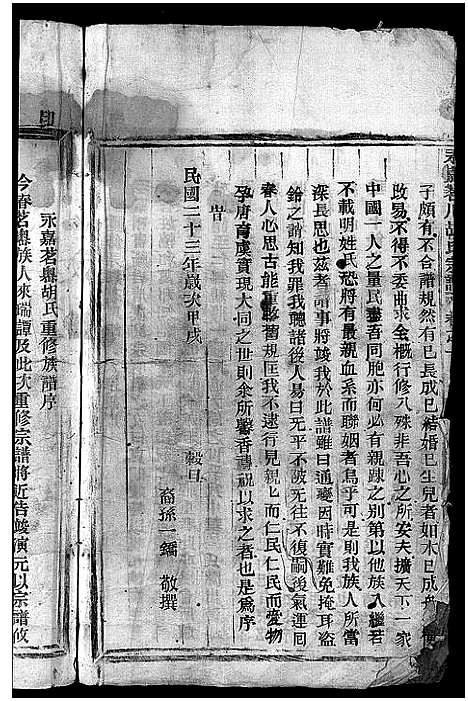 子頗有不合譜規然有已長成已結婚已生兒者如木已成舟便
改易不得不委曲求全概行修入殊非吾心之所安夫擴天下一家
中國一人之量民吾同胞亦何必有親疎之別第以他族入繼若
不載明姓氏恐將有最親血系而聯姻者烏乎可是則我族人所當
深長思也茲者譜事將竣我於此譜雖曰通變因時實難免掩耳盜
鈴之誚知我罪我聽諸後人易曰无平不陂无往不復嗣後氣運回
春人心思古能重整舊規匡我不逮行見親親而仁民仁民而愛物
孕唐育虞實現大同之世則余所馨香禱祝以求之者也是爲序
旹
民國二十三年歲次甲戌 穀旦
裔孫一鏞 敬撰
永嘉茗嶴胡氏重修族譜序
今春茗嶴族人來瑞譚及此次重修宗譜將近告竣演元以宗譜攸
印